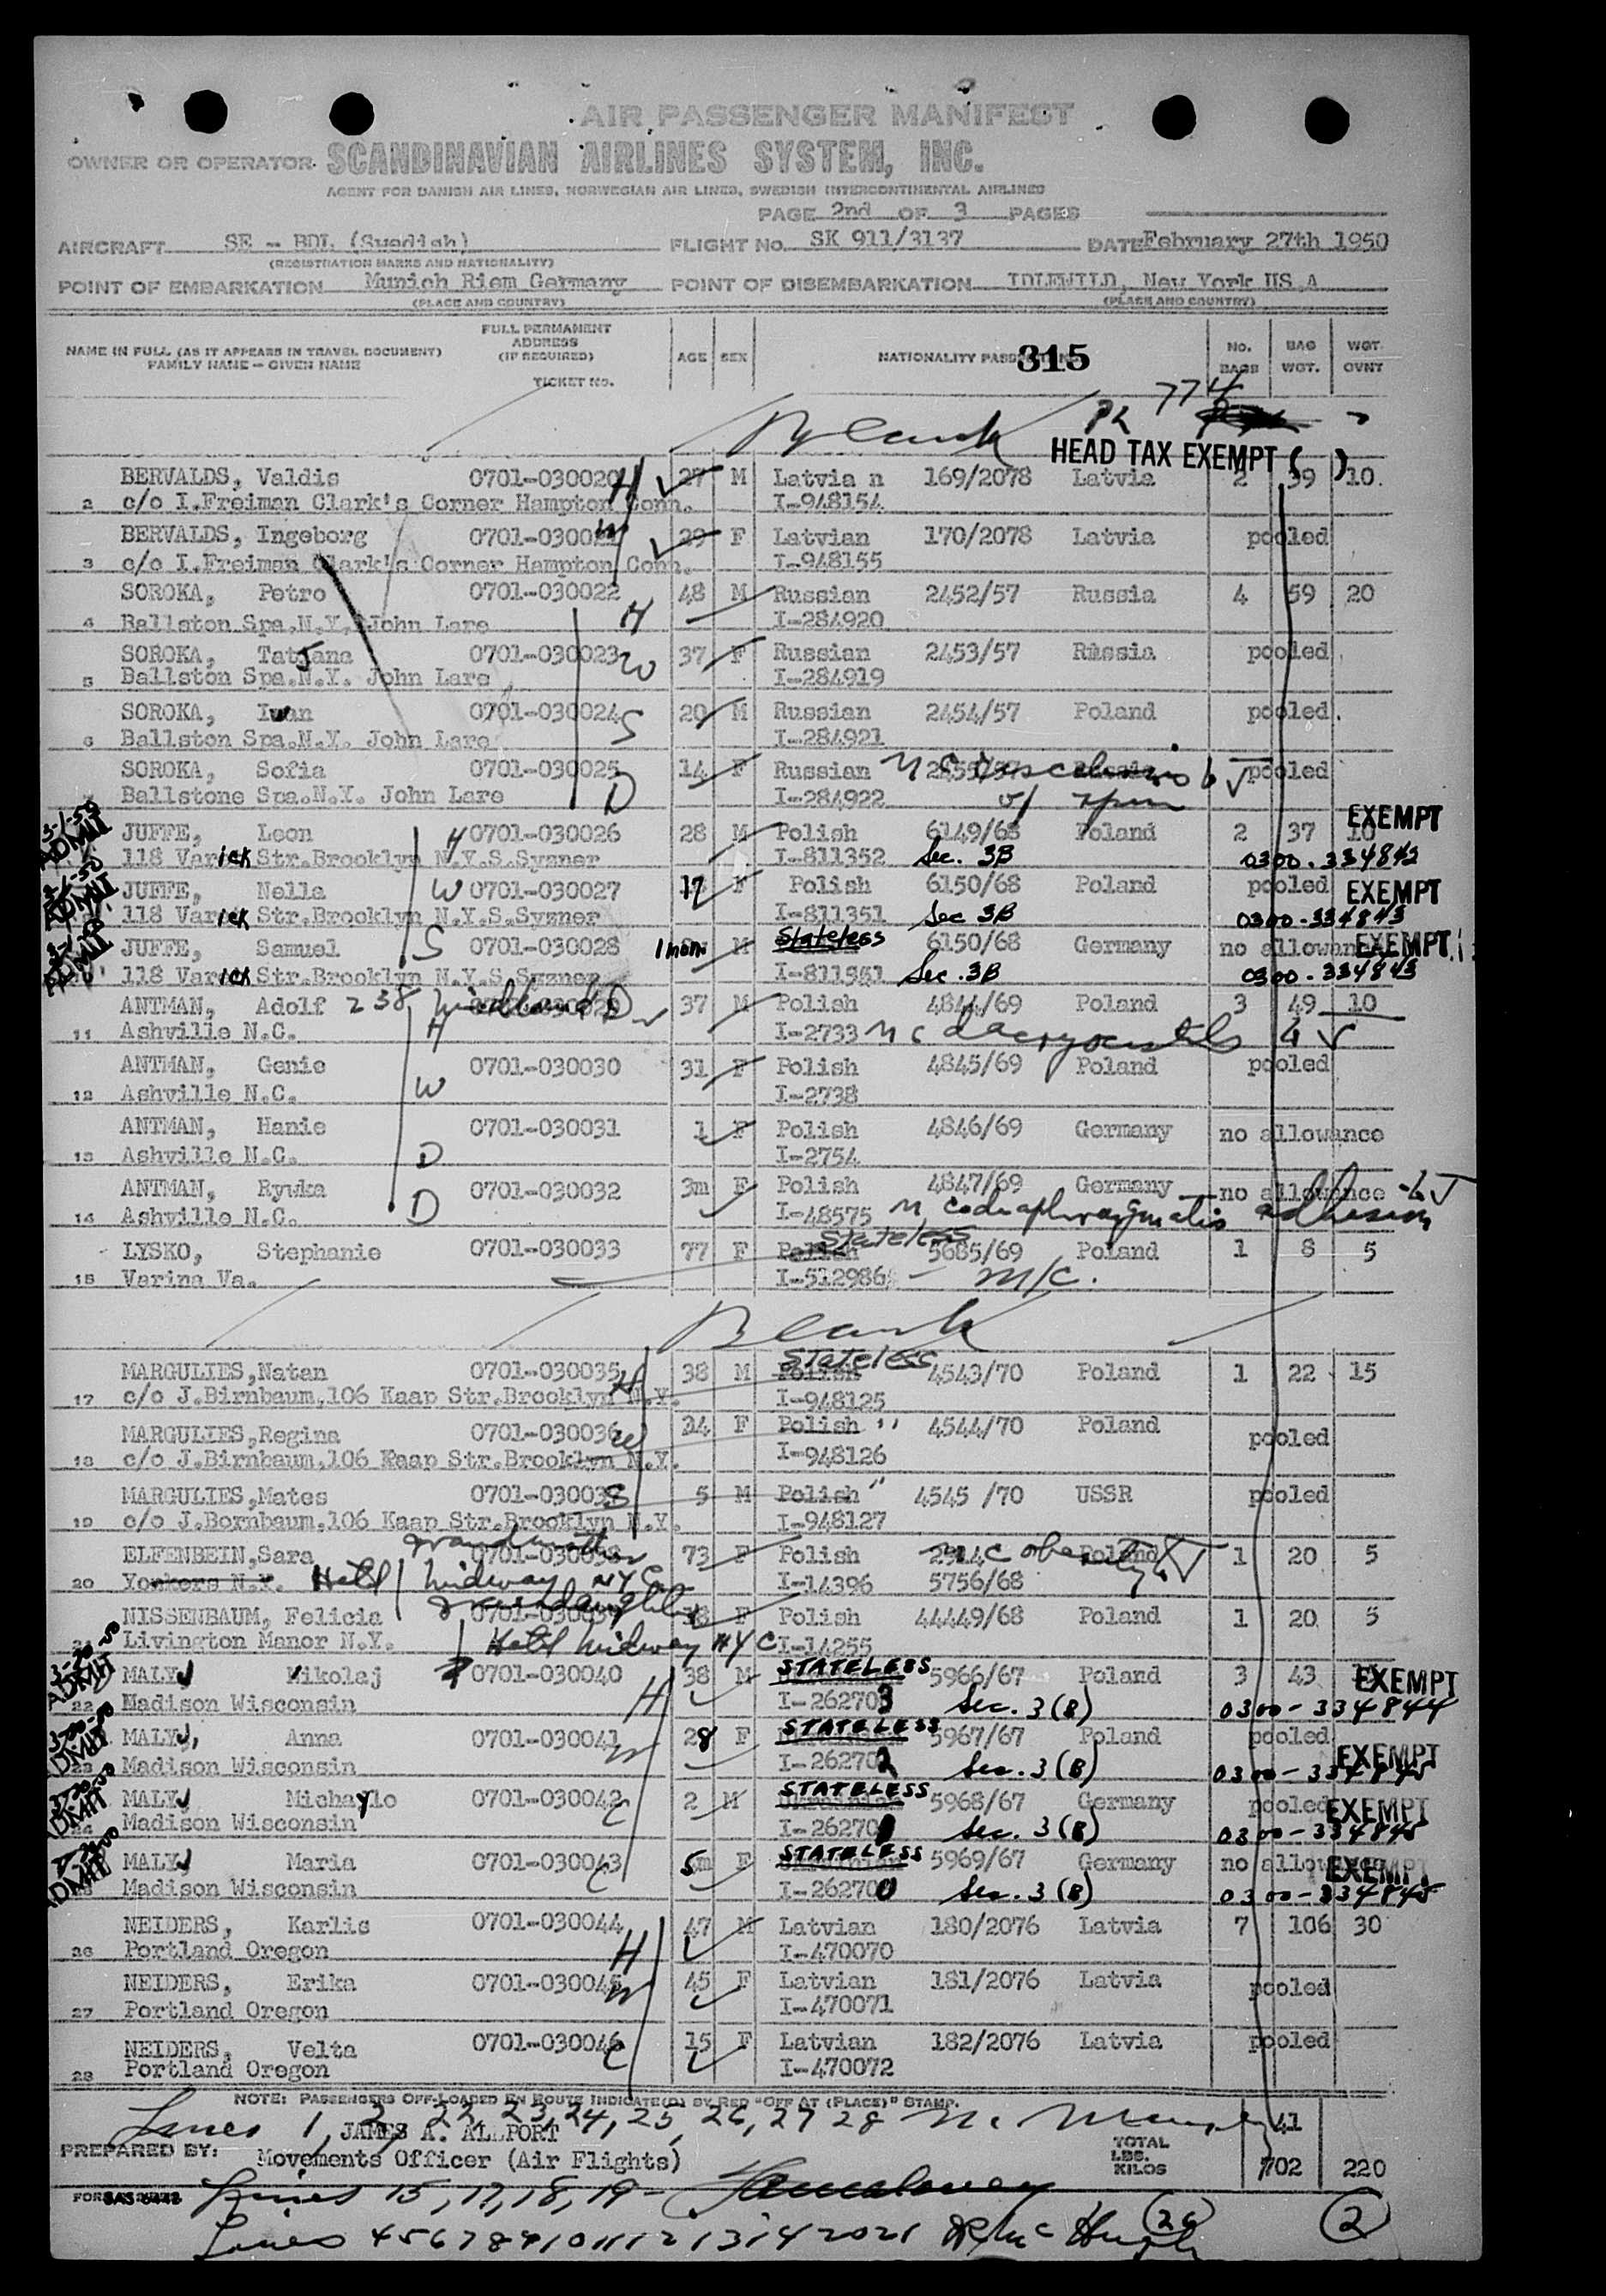 AIR PASSENGER MANIFEST
OWNER OR OPERATOR SCANDINAVIAN AIRLINES SYSTEM, INC.
AGENT FOR DANISH AIR LINES, NORWEGIAN AIR LINES, SWEDISH INTERCONTINENTAL AIRLINES
PAGE 2nd OF 3 PAGES
AIRCRAFT SE - BDL (Swedish) FLIGHT No. SK 911/3137 DATE February 27th 1950
(REGISTRATION MARKS AND NATIONALITY)
POINT OF EMBARKATION Munich Riem Germany POINT OF DISEMBARKATION IDLEWILD, New York US.A
(PLACE AND COUNTRY) (PLACE AND COUNTRY)
NAME IN FULL (AS IT APPEARS IN TRAVEL DOCUMENT) FAMILY NAME – GIVEN NAME FULL PERMANENT ADDRESS (IF REQUIRED) TICKET No. AGE SEX NATIONALITY 315 No. BAGS BAG WGT. WGT. OVNT
774
Blank
HEAD TAX EXEMPT ( )
BERVALDS, Valdis 0701-030020 H 27 M Latvia n 169/2078 Latvia 2 39 10.
2 c/o I.Freiman Clark's Corner Hampton Conn. I-948154
BERVALDS, Ingeborg W 29 F Latvian 170/2078 Latvia pooled
3 c/o I.Freiman Clark's Corner Hampton Conn. I-948155
SOROKA, Petro 0701-030022 48 M Russian 2452/57 Russia 4 59 20
4 Ballston Spa.N.Y. John Lare H I-284920
SOROKA, Tatjana 0701-030023 W 37 F Russian 2453/57 Russia pooled
5 Ballston Spa.N.Y. John Lare I-284919
SOROKA, Iwan 0701-030024 S 20 M Russian 2454/57 Poland pooled.
6 Ballston Spa.N.Y. John Lare I-284921
SOFIA SOROKA, Sofia 0701-030025 14 F Russian pooled
Ballstone Spa.N.Y. John Lare D I-284922
3-1-50 ADMIT JUFFE, Leon H 0701-030026 28 M Polish 6149/68 Poland 2 37 10 EXEMPT
118 Varick Str.Brooklyn N.Y.S.Syzner I-811352 Sec. 3B 0300-334842
ADMIT JUFFE, Nella W 0701-030027 17 F Polish 6150/68 Poland pooled EXEMPT
118 Varick Str.Brooklyn N.Y.S.Syzner I-811351 Sec 3B 0300-334843
ADMIT JUFFE, Samuel S 0701-030028 M Stateless 6150/68 Germany no allowance EXEMPT
118 Varick Str.Brooklyn N.Y.S.Syzner I-811351 Sec. 3B 0300-334843
ANTMAN, Adolf 238 37 M Polish 4844/69 Poland 3 49 10
11 Ashville N.C. H I-2733
ANTMAN, Genie 0701-030030 31 F Polish 4845/69 Poland pooled
12 Ashville N.C. W I-2738
ANTMAN, Hanie 0701-030031 1 F Polish 4846/69 Germany no allowance
13 Ashville N.C. D I-2754
ANTMAN, Rywka 0701-030032 3m F Polish 4847/69 Germany no allowance
14 Ashville N.C. D I-48575 adhesion
LYSKO, Stephanie 0701-030033 77 F Polish Stateless 5685/69 Poland 1 8 5
15 Varina Va. I-512986 - M/C.
Blank
MARGULIES,Natan 0701-030035 H 38 M Polish Stateless 4543/70 Poland 1 22 15
17 c/o J.Birnbaum,106 Kaap Str.Brooklyn N.Y. I-948125
MARGULIES,Regina 0701-030036 W 34 F Polish " 4544/70 Poland pooled
18 c/o J.Birnbaum,106 Kaap Str.Brooklyn N.Y. I-948126
MARGULIES,Mates S 5 M Polish " 4545 /70 USSR pooled
19 c/o J.Bornbaum,106 Kaap Str.Brooklyn N.Y. I-948127
ELFENBEIN,Sara grandmother 73 F Polish Poland 1 20 5
20 Yonkers N.Y. Hotel Midway NYC I-14396 5756/68
NISSENBAUM, Felicia granddaughter 18 F Polish 44449/68 Poland 1 20 5
Livington Manor N.Y. Hotel Midway NYC I-14255
ADMIT MALYJ Mikolaj 0701-030040 38 M STATELESS 5966/67 Poland 3 43 EXEMPT
22 Madison Wisconsin H I-262703 Sec. 3(B) 0300-334844
ADMIT MALYJ, Anna 0701-030041 W 28 F STATELESS 5967/67 Poland pooled
23 Madison Wisconsin I-262702 Sec. 3(B) EXEMPT 0300-334845
ADMIT MALYJ Michaylo 0701-030042 C 2 M STATELESS 5968/67 Germany pooled EXEMPT
24 Madison Wisconsin I-262701 Sec. 3(B) 0300-334845
ADMIT MALYJ Maria 0701-030043 C 5m F STATELESS 5969/67 Germany no allowance EXEMPT
Madison Wisconsin I-262700 Sec. 3(B) 0300-334845
NEIDERS, Karlis 0701-030044 47 M Latvian 180/2076 Latvia 7 106 30
26 Portland Oregon H I-470070
NEIDERS, Erika 0701-030045 W 45 F Latvian 181/2076 Latvia pooled
27 Portland Oregon I-470071
NEIDERS, Velta 0701-030046 C 15 F Latvian 182/2076 Latvia pooled
28 Portland Oregon I-470072
NOTE: PASSENGERS OFF-LOADED EN ROUTE INDICATE(D) BY RED "OFF AT (PLACE)" STAMP.
Lines 1, 2, 3, 22, 23, 24, 25, 26, 27 28 41
PREPARED BY: JAMES A. ALLPORT
Movements Officer (Air Flights) TOTAL LBS. KILOS 702 220
Lines 15, 17, 18, 19 -
Lines 4 5 6 7 8 9 10 11 12 13 14 20 21 McHugh (26) (2)